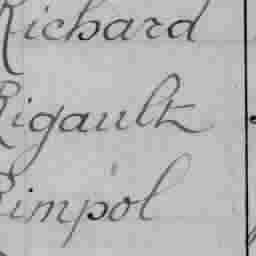 Richard
Rigault
Rimpol